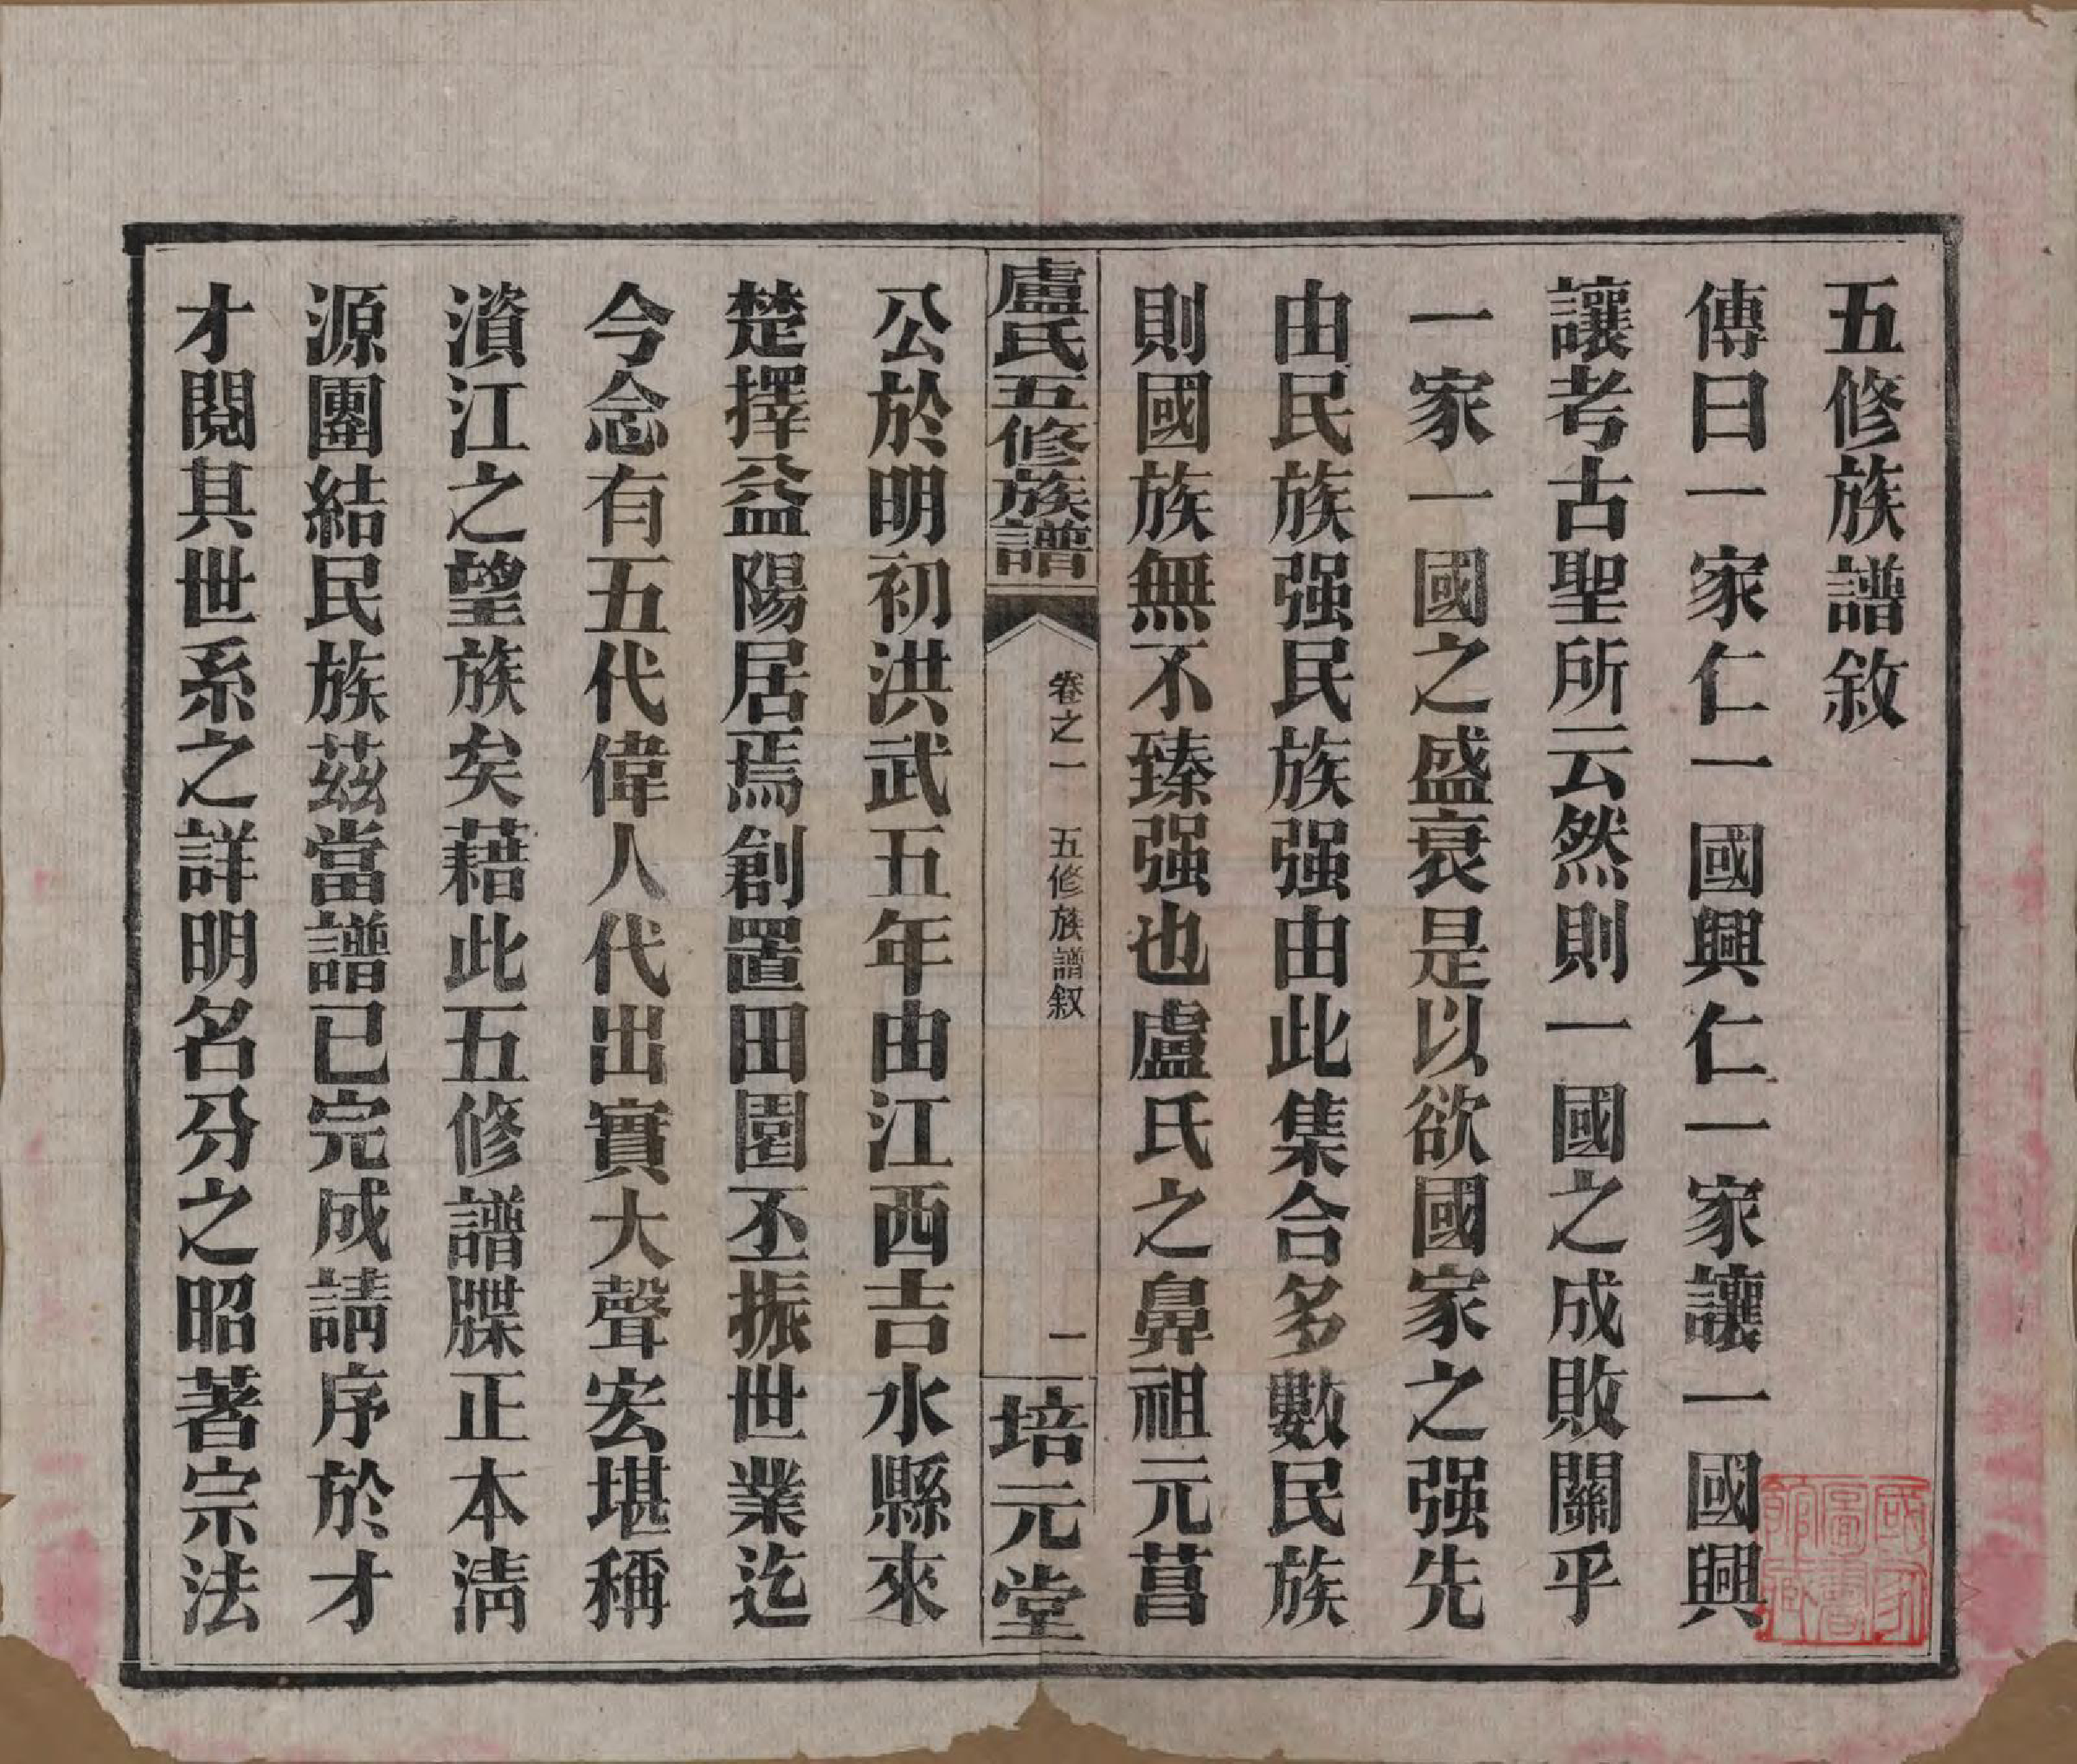 五修族譜敘
傳曰一家仁一國興仁一家讓一國興
讓考古聖所云然則一國之成敗關乎
一家一國之盛衰是以欲國家之强先
由民族强民族强由此集合多數民族
則國族無不臻强也盧氏之鼻祖元菖
盧氏五修族譜
卷之一 五修族譜叙
一
培元堂
公於明初洪武五年由江西吉水縣來
楚擇益陽居焉創置田園丕振世業迄
今念有五代偉人代出實大聲宏堪稱
濱江之望族矣藉此五修譜牒正本淸
源團結民族茲當譜已完成請序於才
才閱其世系之詳明名分之昭著宗法
國家
圖書
館藏